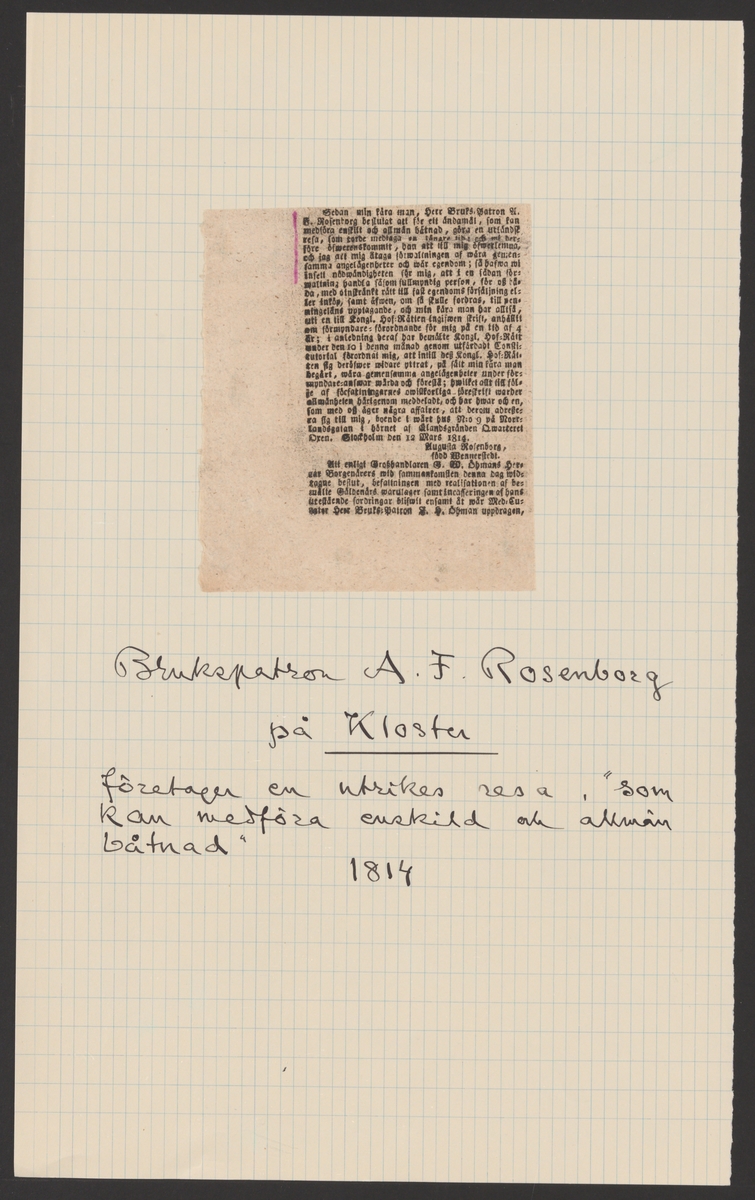 Sedan min kära man, Herr Bruks-Patron A.
F. Rosenborg beslutat att för ett ändamål, som kan
medföra enskilt och allmän båtnad, göra en utländsk
resa, som torde medtaga en längre tid; och wi der-
före öfwerenskommit, han att till mig öfwerlemna,
och jag att mig åtaga förwaltningen af wåra gemen-
samma angelägenheter och wår egendom; så hafwa wi
insett nödwändigheten för mig, att i en sådan för-
waltning handla såsom fullmyndig person, för oß bå-
da, med oinskränkt rätt till fast egendoms försäljning el-
ler inköp, samt äfwen, om så skulle fordras, till pen-
ningeläns upptagande, och min kära man har altså,
uti en till Kongl. Hof-Rätten ingifwen skrift, anhållit
om förmyndare-förordnande för mig på en tid af 4
år; i anledning heraf har bemälte Kongl. Hof-Rätt
under den 10 i denna månad genom utfärdadt Consti-
tutorial förordnat mig, att intill deß Kongl. Hof-Rät-
ten sig deröfwer widare yttrat, på sätt min kära man
begärt, wåra gemensamma angelägenheter under för-
myndare-answar wårda och förestå; hwilket allt till föl-
je af författningarnes owilkorliga föreskrift warder
allmänheten härigenom meddeladt, och har hwar och en,
som med oß äger några affairer, att derom adreße-
ra sig till mig, boende i wårt hus N:o 9 på Norr-
landsgatan i hörnet af Ålandsgränden Qwarteret
Oxen. Stockholm den 12 Mars 1814.
Augusta Rosenborg,
född Wennerstedt.
Att enligt Großhandlaren G. W. Öhmans Her-
rar Borgenärers wid sammankomsten denna dag wid-
tagne beslut, befattningen med realisationen af be-
mälte Gäldenärs warulager samt incasseringen af hans
utestående fordringar blifwit ensamt åt wår Med-Cu-
rator Herr Bruks-Patron J. H. Öhman uppdragen,
Brukspatron A. F. Rosenborg
på Kloster
företager en utrikes resa, "som
kan medföra enskild och allmän
båtnad"
1814